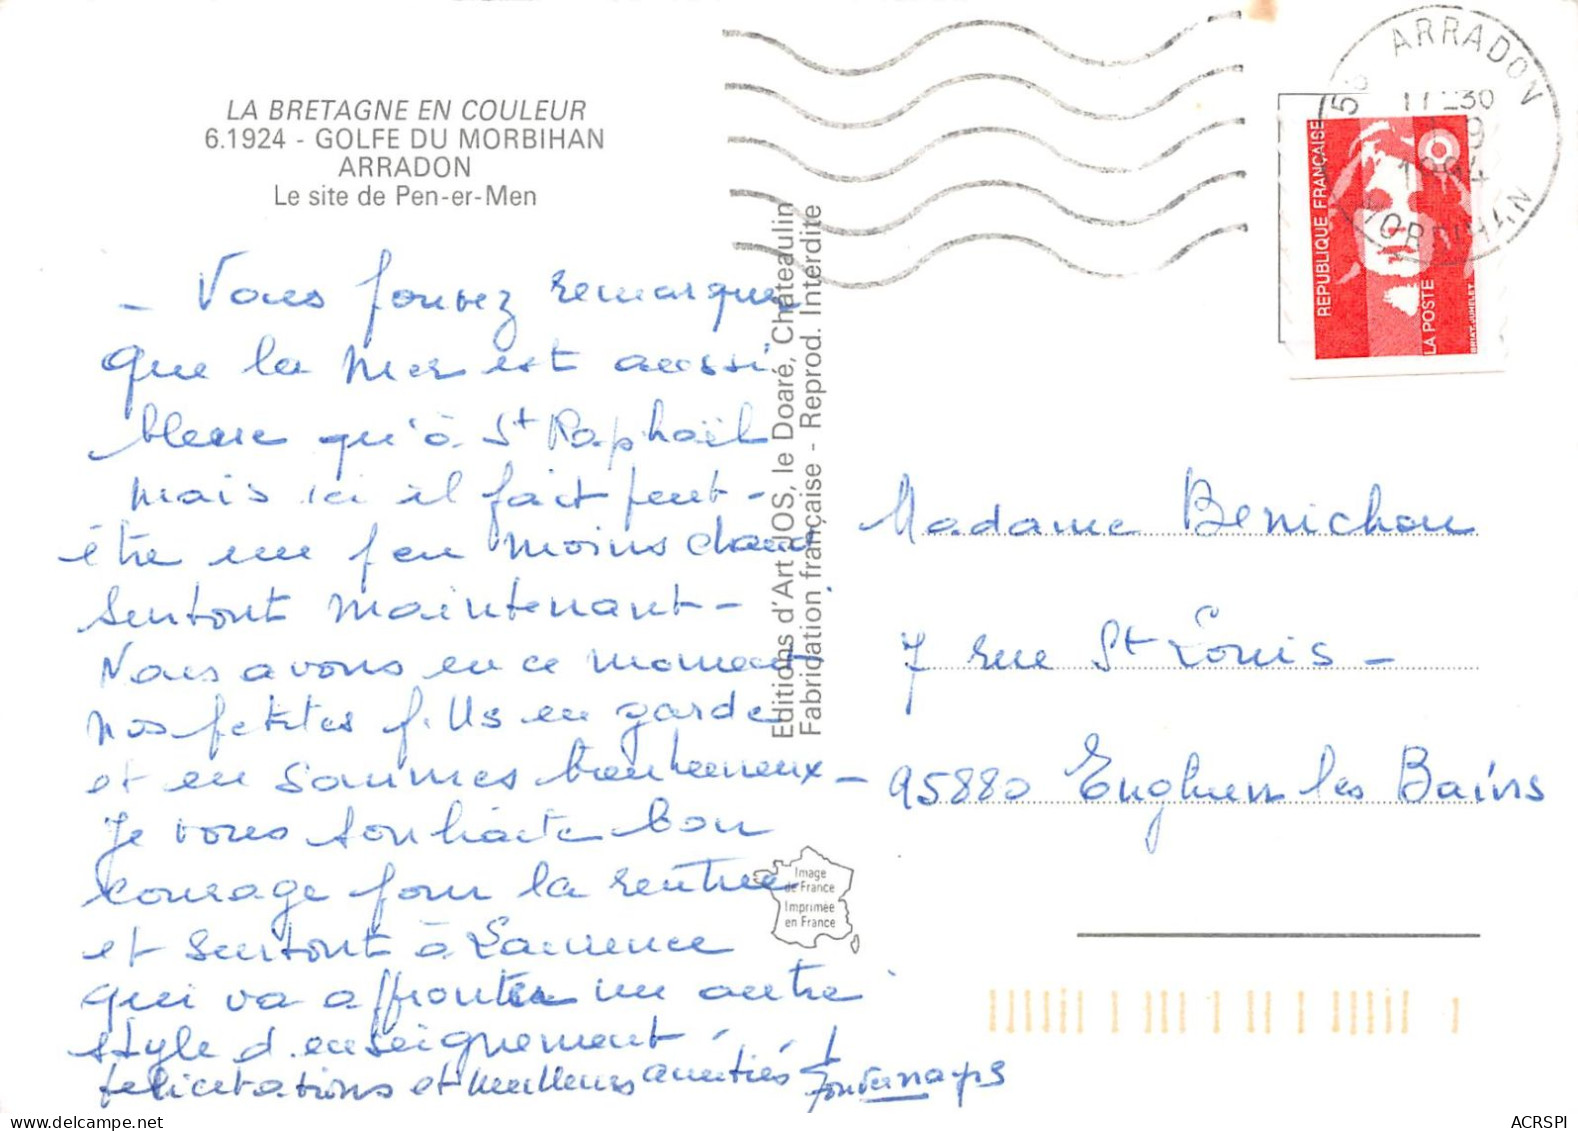 LA BRETAGNE EN COULEUR
6.1924 - GOLFE DU MORBIHAN
ARRADON
Le site de Pen-er-Men
- Vous pouvez remarquer
que la mer est aussi
bleue qu'à St Raphaël
mais ici il fait peut-
être un peu moins chaud
surtout maintenant -
Nous avons en ce moment
nos petites filles en garde
et en sommes bienheureux -
Je vous souhaite bon
courage pour la rentrée
et surtout à Laurence
qui va affronter un autre
style d'enseignement -
félicitations et meilleures amitiés
Editions d'Art JOS, le Doaré, Châteaulin
Fabrication française - Reprod. Interdite
Image
de France
Imprimée
en France
56 ARRADON
17-30
1994
MORBIHAN
REPUBLIQUE FRANÇAISE
LA POSTE
BRIAT-JUMELET
Madame Benichou
7 rue St Louis -
95880 Enghien les Bains
ACRSPI